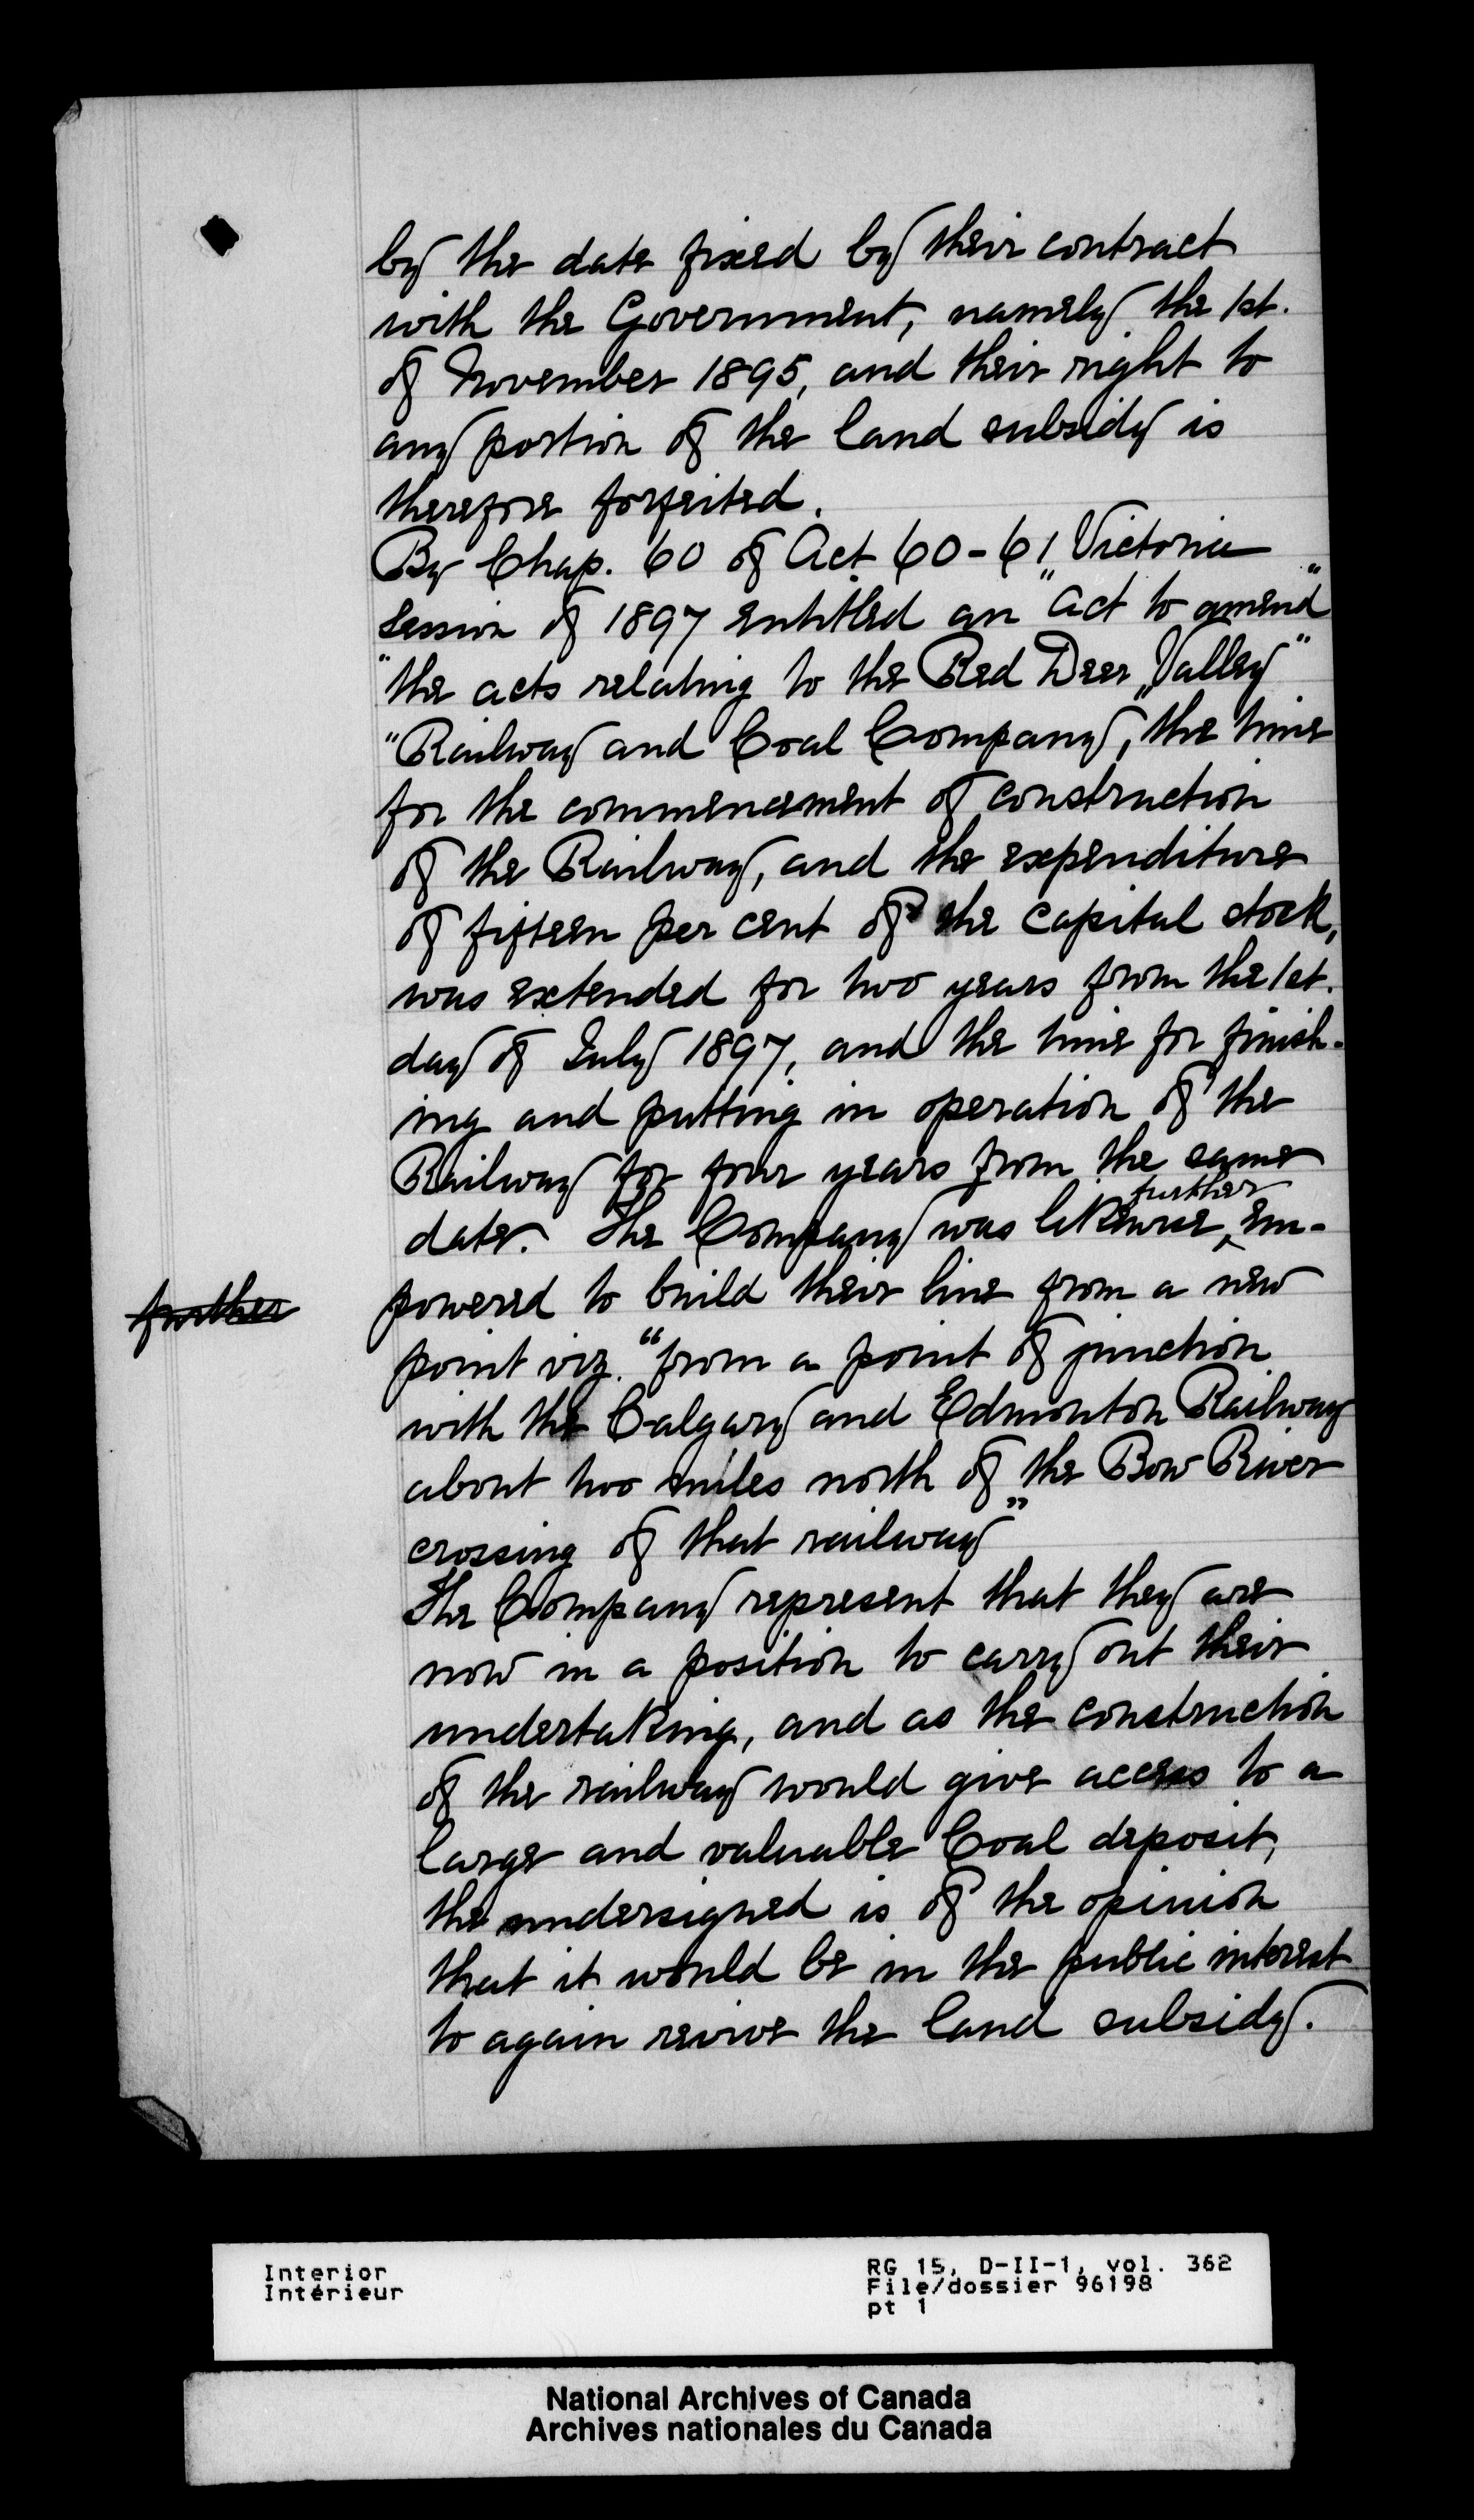 by the date fixed by their contract
with the Government, namely the 1st.
of November 1895, and their right to
any portion of the land subsidy is
therefore forfeited.
By Chap. 60 of Act 60-61 Victoria
session of 1897 entitled an "Act to amend"
"the acts relating to the Red Deer Valley"
"Railway and Coal Company", the time
for the commencement of construction
of the Railway, and the expenditure
of fifteen per cent of the capital stock,
was extended for two years from the 1st.
day of July 1897, and the time for finish-
ing and putting in operation of the
Railway for four years from the same
date. The Company was likewise further em-
further
powered to build their line from a new
point viz. "from a point of junction
with the Calgary and Edmonton Railway
about two miles north of the Bow River
crossing of that railway"
The Company represent that they are
now in a position to carry out their
undertaking, and as the construction
of the railway would give access to a
large and valuable Coal deposit,
the undersigned is of the opinion
that it would be in the public interest
to again revive the land subsidy.
Interior
Intérieur
RG 15, D-II-1, vol. 362
File/dossier 96198
pt 1
National Archives of Canada
Archives nationales du Canada